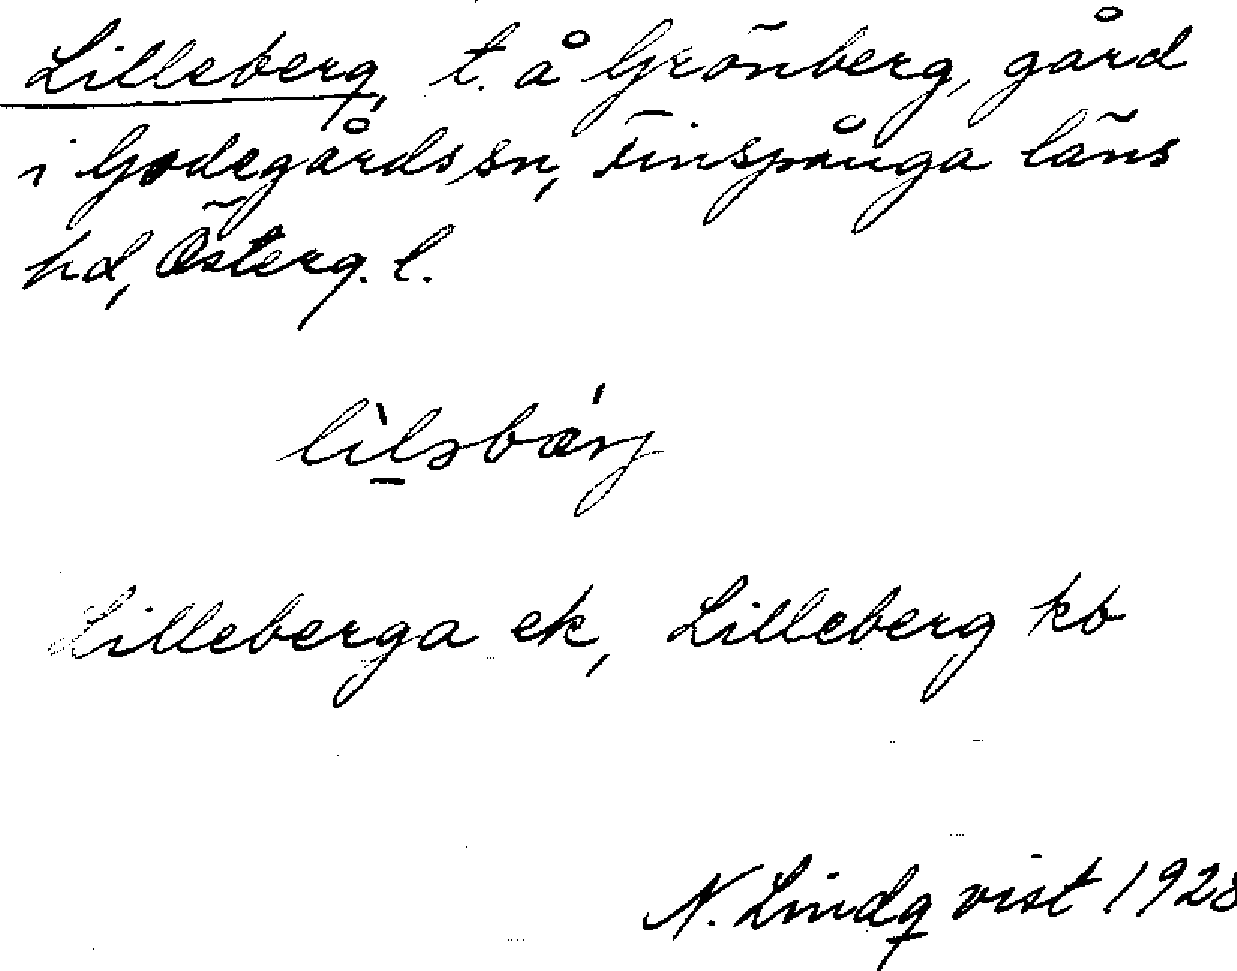 Lilleberg, t. å Grönberg, gård
i Godegårds sn, Finspånga läns
hd, Österg. l.
lìləbærj
Lilleberga ek, Lilleberg kb
N. Lindqvist 1928